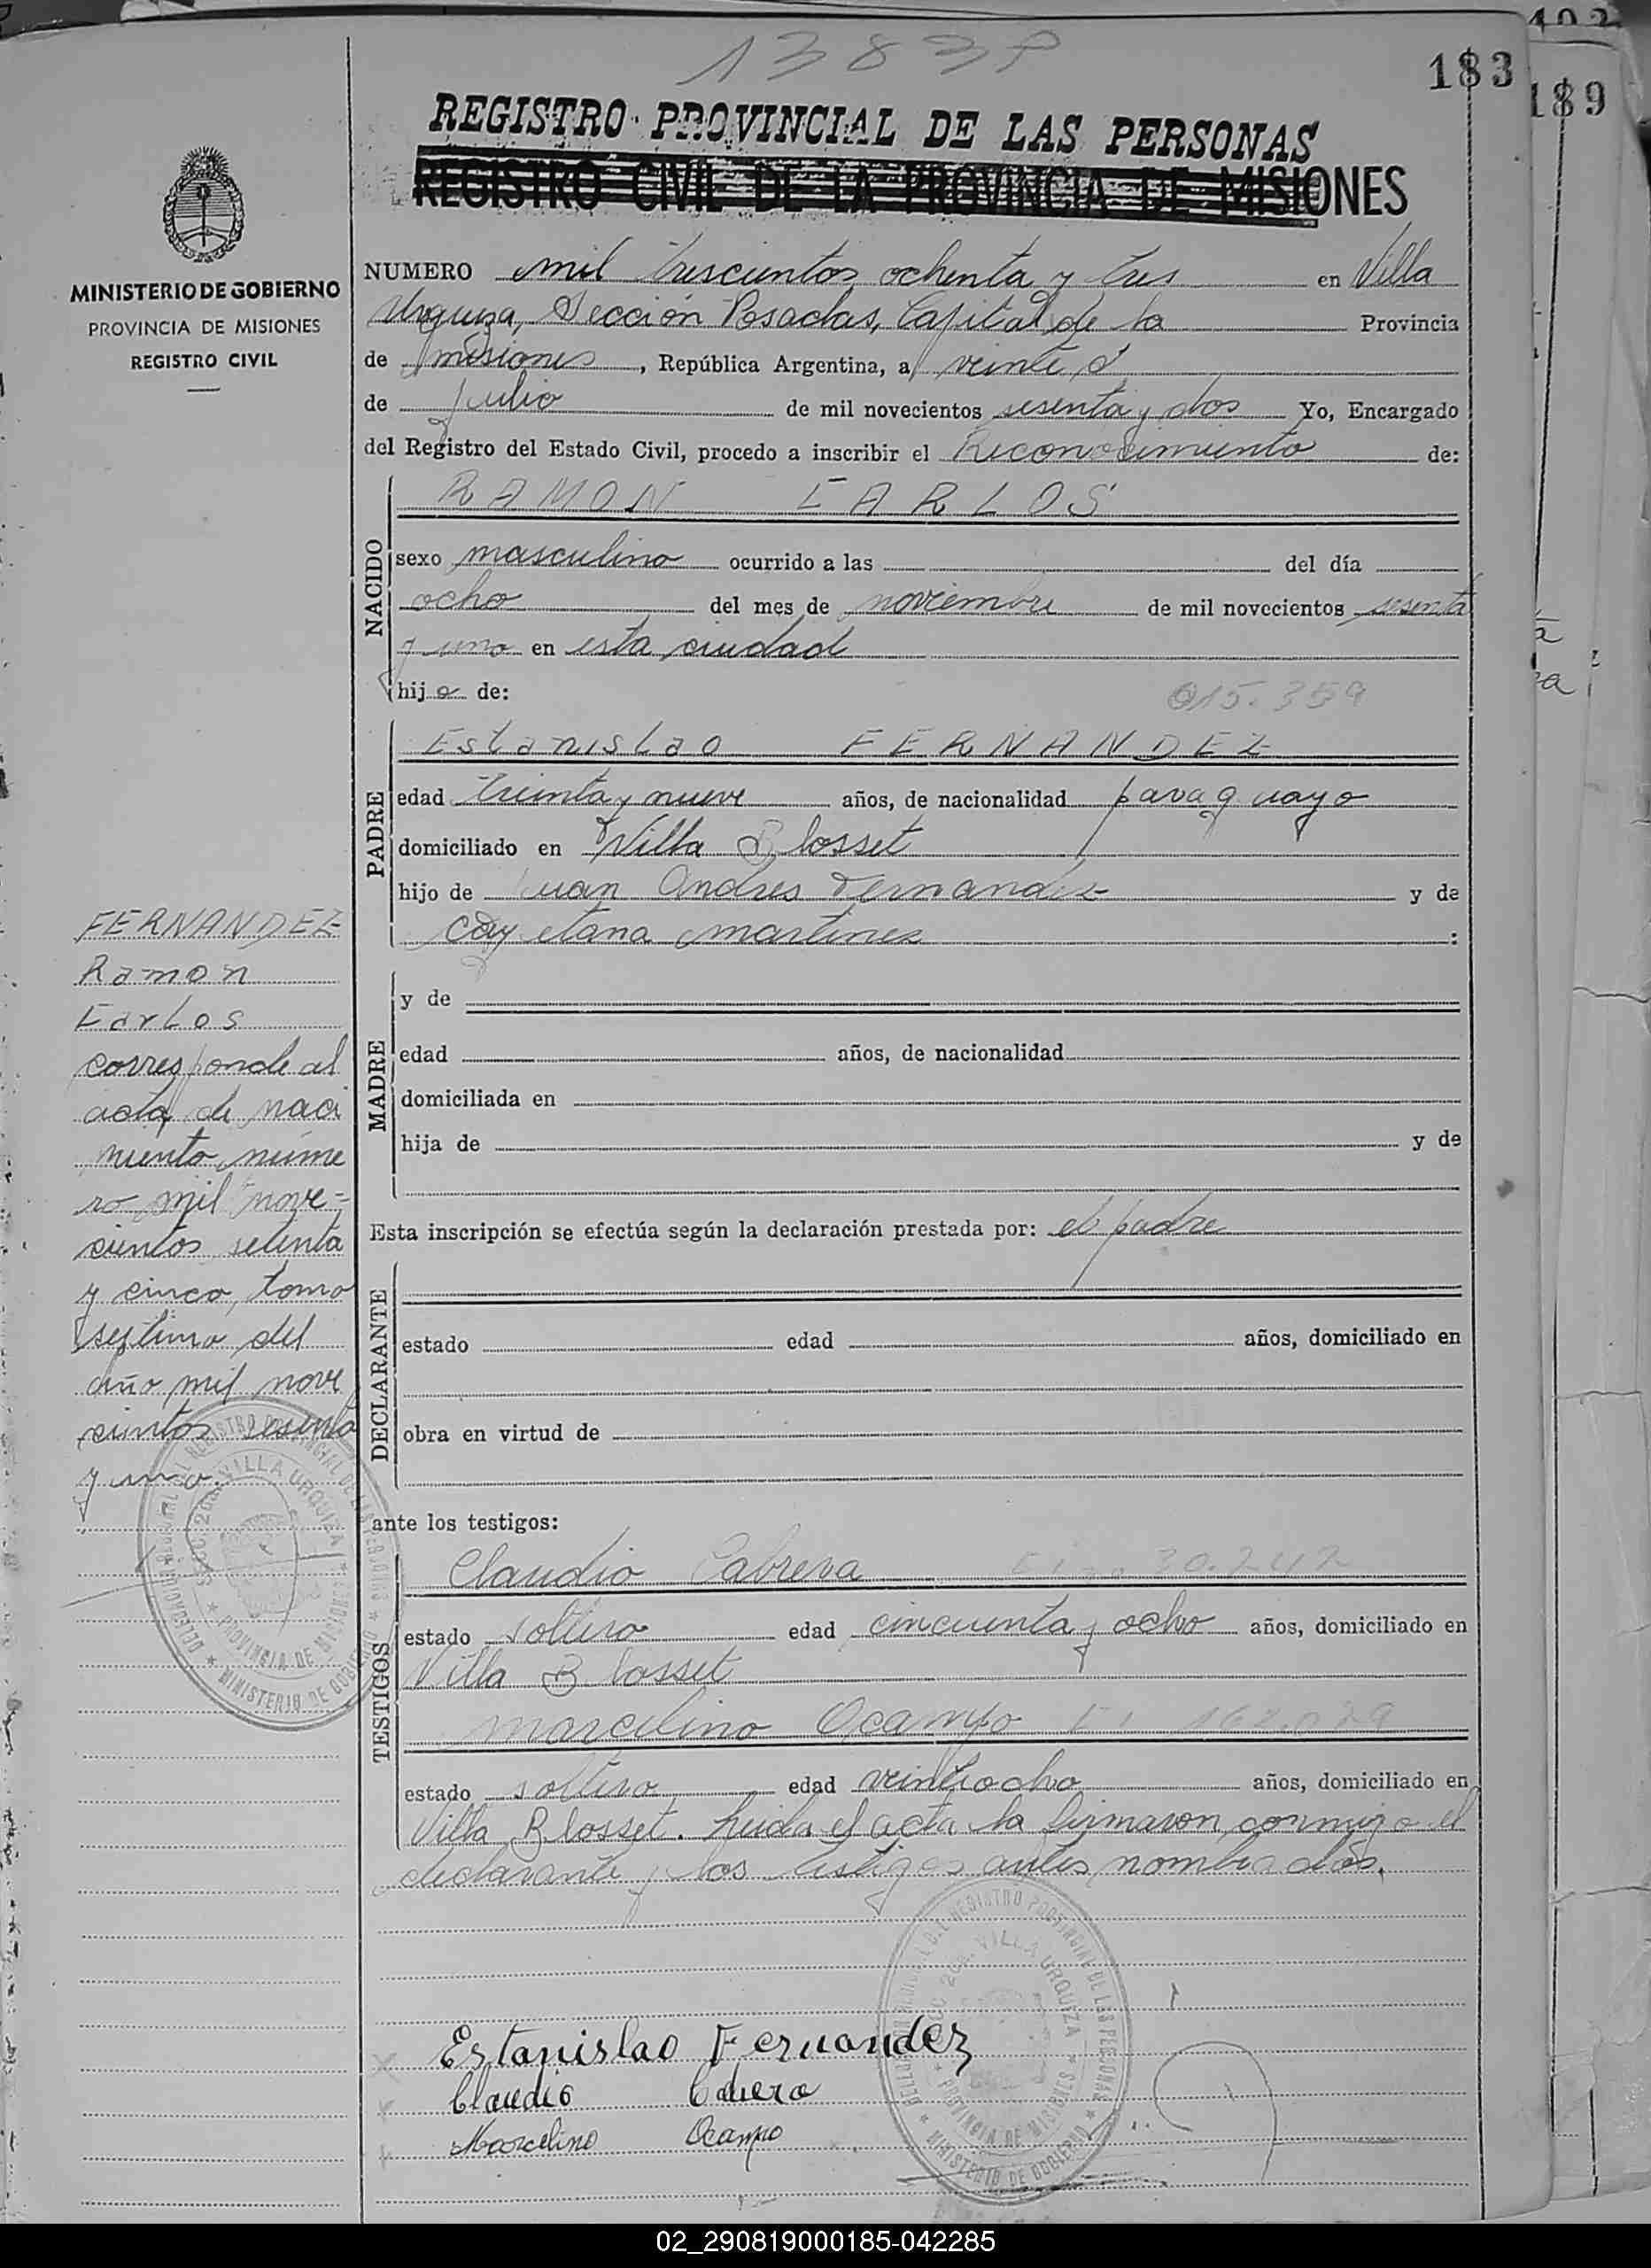 183
189
REGISTRO PROVINCIAL DE LAS PERSONAS
REGISTRO CIVIL DE LA PROVINCIA DE MISIONES
MINISTERIO DE GOBIERNO
PROVINCIA DE MISIONES
REGISTRO CIVIL
NUMERO mil trescientos ochenta y tres en Villa
Urquiza, Sección Posadas, Capital de la Provincia
de Misiones, República Argentina, a veinte
de julio de mil novecientos sesenta y dos Yo, Encargado
del Registro del Estado Civil, procedo a inscribir el Reconocimiento de:
NACIDO
RAMON CARLOS
sexo masculino ocurrido a las del día
ocho del mes de noviembre de mil novecientos sesenta
y uno en esta ciudad
hijo de:
015.359
PADRE
Estanislao FERNANDEZ
edad treinta y nueve años, de nacionalidad paraguayo
domiciliado en Villa Blosset
hijo de Juan Andres Fernandez y de
Cayetana Martinez :
MADRE
y de
edad años, de nacionalidad
domiciliada en
hija de y de
Esta inscripción se efectúa según la declaración prestada por: el padre
DECLARANTE
estado edad años, domiciliado en
obra en virtud de
ante los testigos:
TESTIGOS
Claudio Cabrera 30.242
estado soltero edad cincuenta y ocho años, domiciliado en
Villa Blosset
Marcelino Ocampo
estado soltero edad veintiocho años, domiciliado en
Villa Blosset. Leida el acta la firmaron conmigo el
declarante y los testigos antes nombrados.
FERNANDEZ
Ramon
Carlos
corresponde al
acta de naci
miento núme
ro mil nove-
cientos setenta
y cinco, tomo
septimo del
año mil nove
cientos sesenta
y uno.
Estanislao Fernandez
Claudio Cabrera
Marcelino Ocampo
02_290819000185-042285